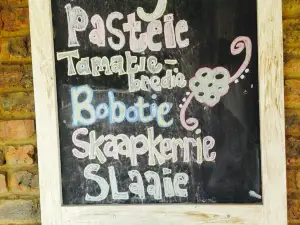 Pasteie
Tamatie-
bredie
Bobotie
Skaapkerrie
SLaaie